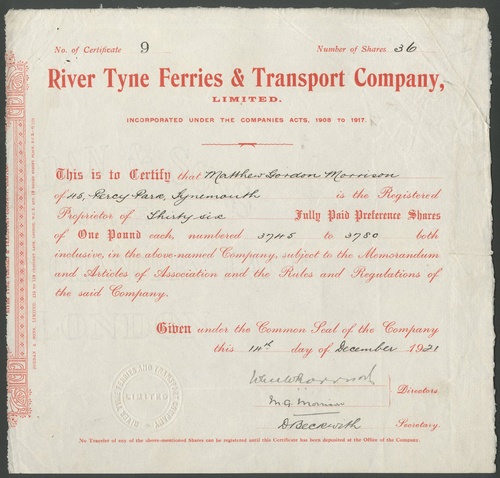 No. of Certificate 9 Number of Shares 36
River Tyne Ferries & Transport Company,
LIMITED.
INCORPORATED UNDER THE COMPANIES ACTS, 1908 TO 1917.
This is to Certify that Matthew Gordon Morrison
of 45, Percy Park, Tynemouth is the Registered
Proprietor of Thirty six Fully Paid Preference Shares
of One Pound each, numbered 3745 to 3780 both
inclusive, in the above-named Company, subject to the Memorandum
and Articles of Association and the Rules and Regulations of
the said Company.
Given under the Common Seal of the Company
this 14th day of December 1921
M G Morrison
Directors.
D Beckwith
Secretary.
RIVER TYNE FERRIES AND TRANSPORT COMPANY
LIMITED
No Transfer of any of the above-mentioned Shares can be registered until this Certificate has been deposited at the Office of the Company.